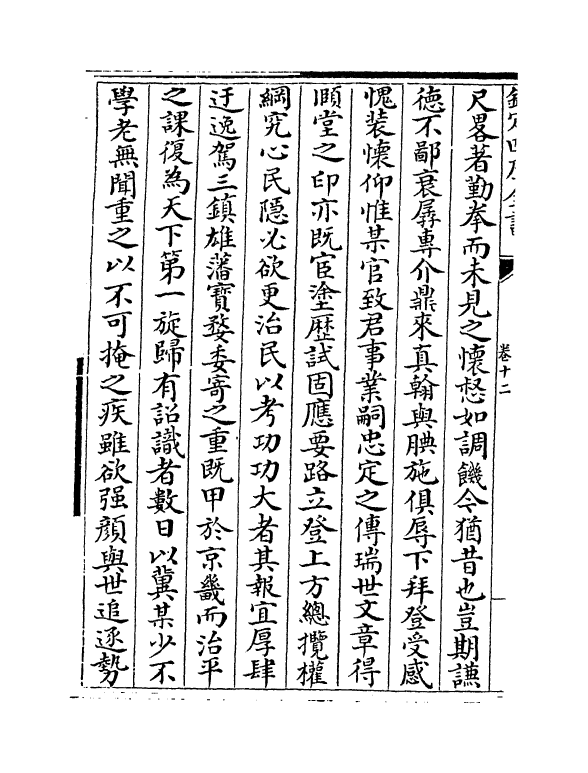 欽定四庫全書
卷十二
尺畧著勤拳而未見之懷惄如調饑今猶昔也豈期謙
德不鄙衰孱專介鼎來真翰與腆施俱辱下拜登受感
愧装懷仰惟某官致君事業嗣忠定之傳瑞世文章得
順堂之印亦既宦塗歴試固應要路立登上方總攬權
綱究心民隱必欲更治民以考功功大者其報宜厚肆
迂逸駕三鎮雄藩寳婺委寄之重既甲於京畿而治平
之課復為天下第一旋歸有詔識者數日以冀某少不
學老無聞重之以不可掩之疾雖欲强顔與世追逐勢